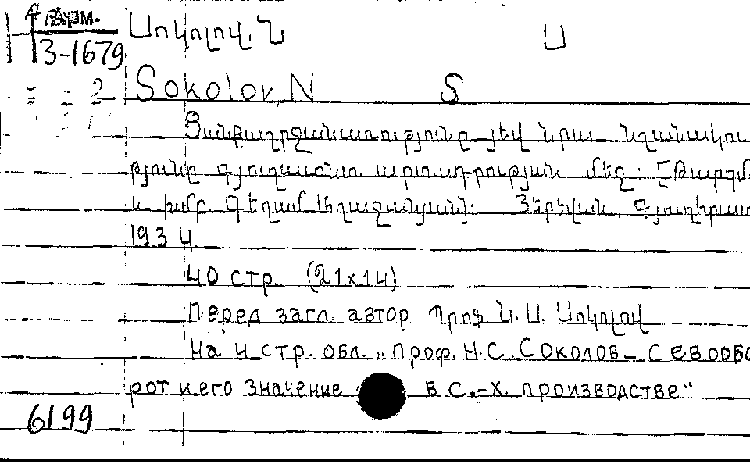 Арм.
3-1679
Սոկոլով. Ն Ս
2
Sokolov, N S
Ցանքաշրջանառությունը յեվ նրա նշանակու
թյունը գյուղատնտ արտադրության մեջ: [Թարգմ.
և խմբ Գեղամ Յերեվան, Գյուղհրատ
1934.
40 стр. (21x14)
Перед загл. автор Պրոֆ Ն. Ս. Սոկոլով
На 4 стр. обл. „Проф. Н. С. Соколов – Севообо
рот и его значение в с.-х. производстве"
6199